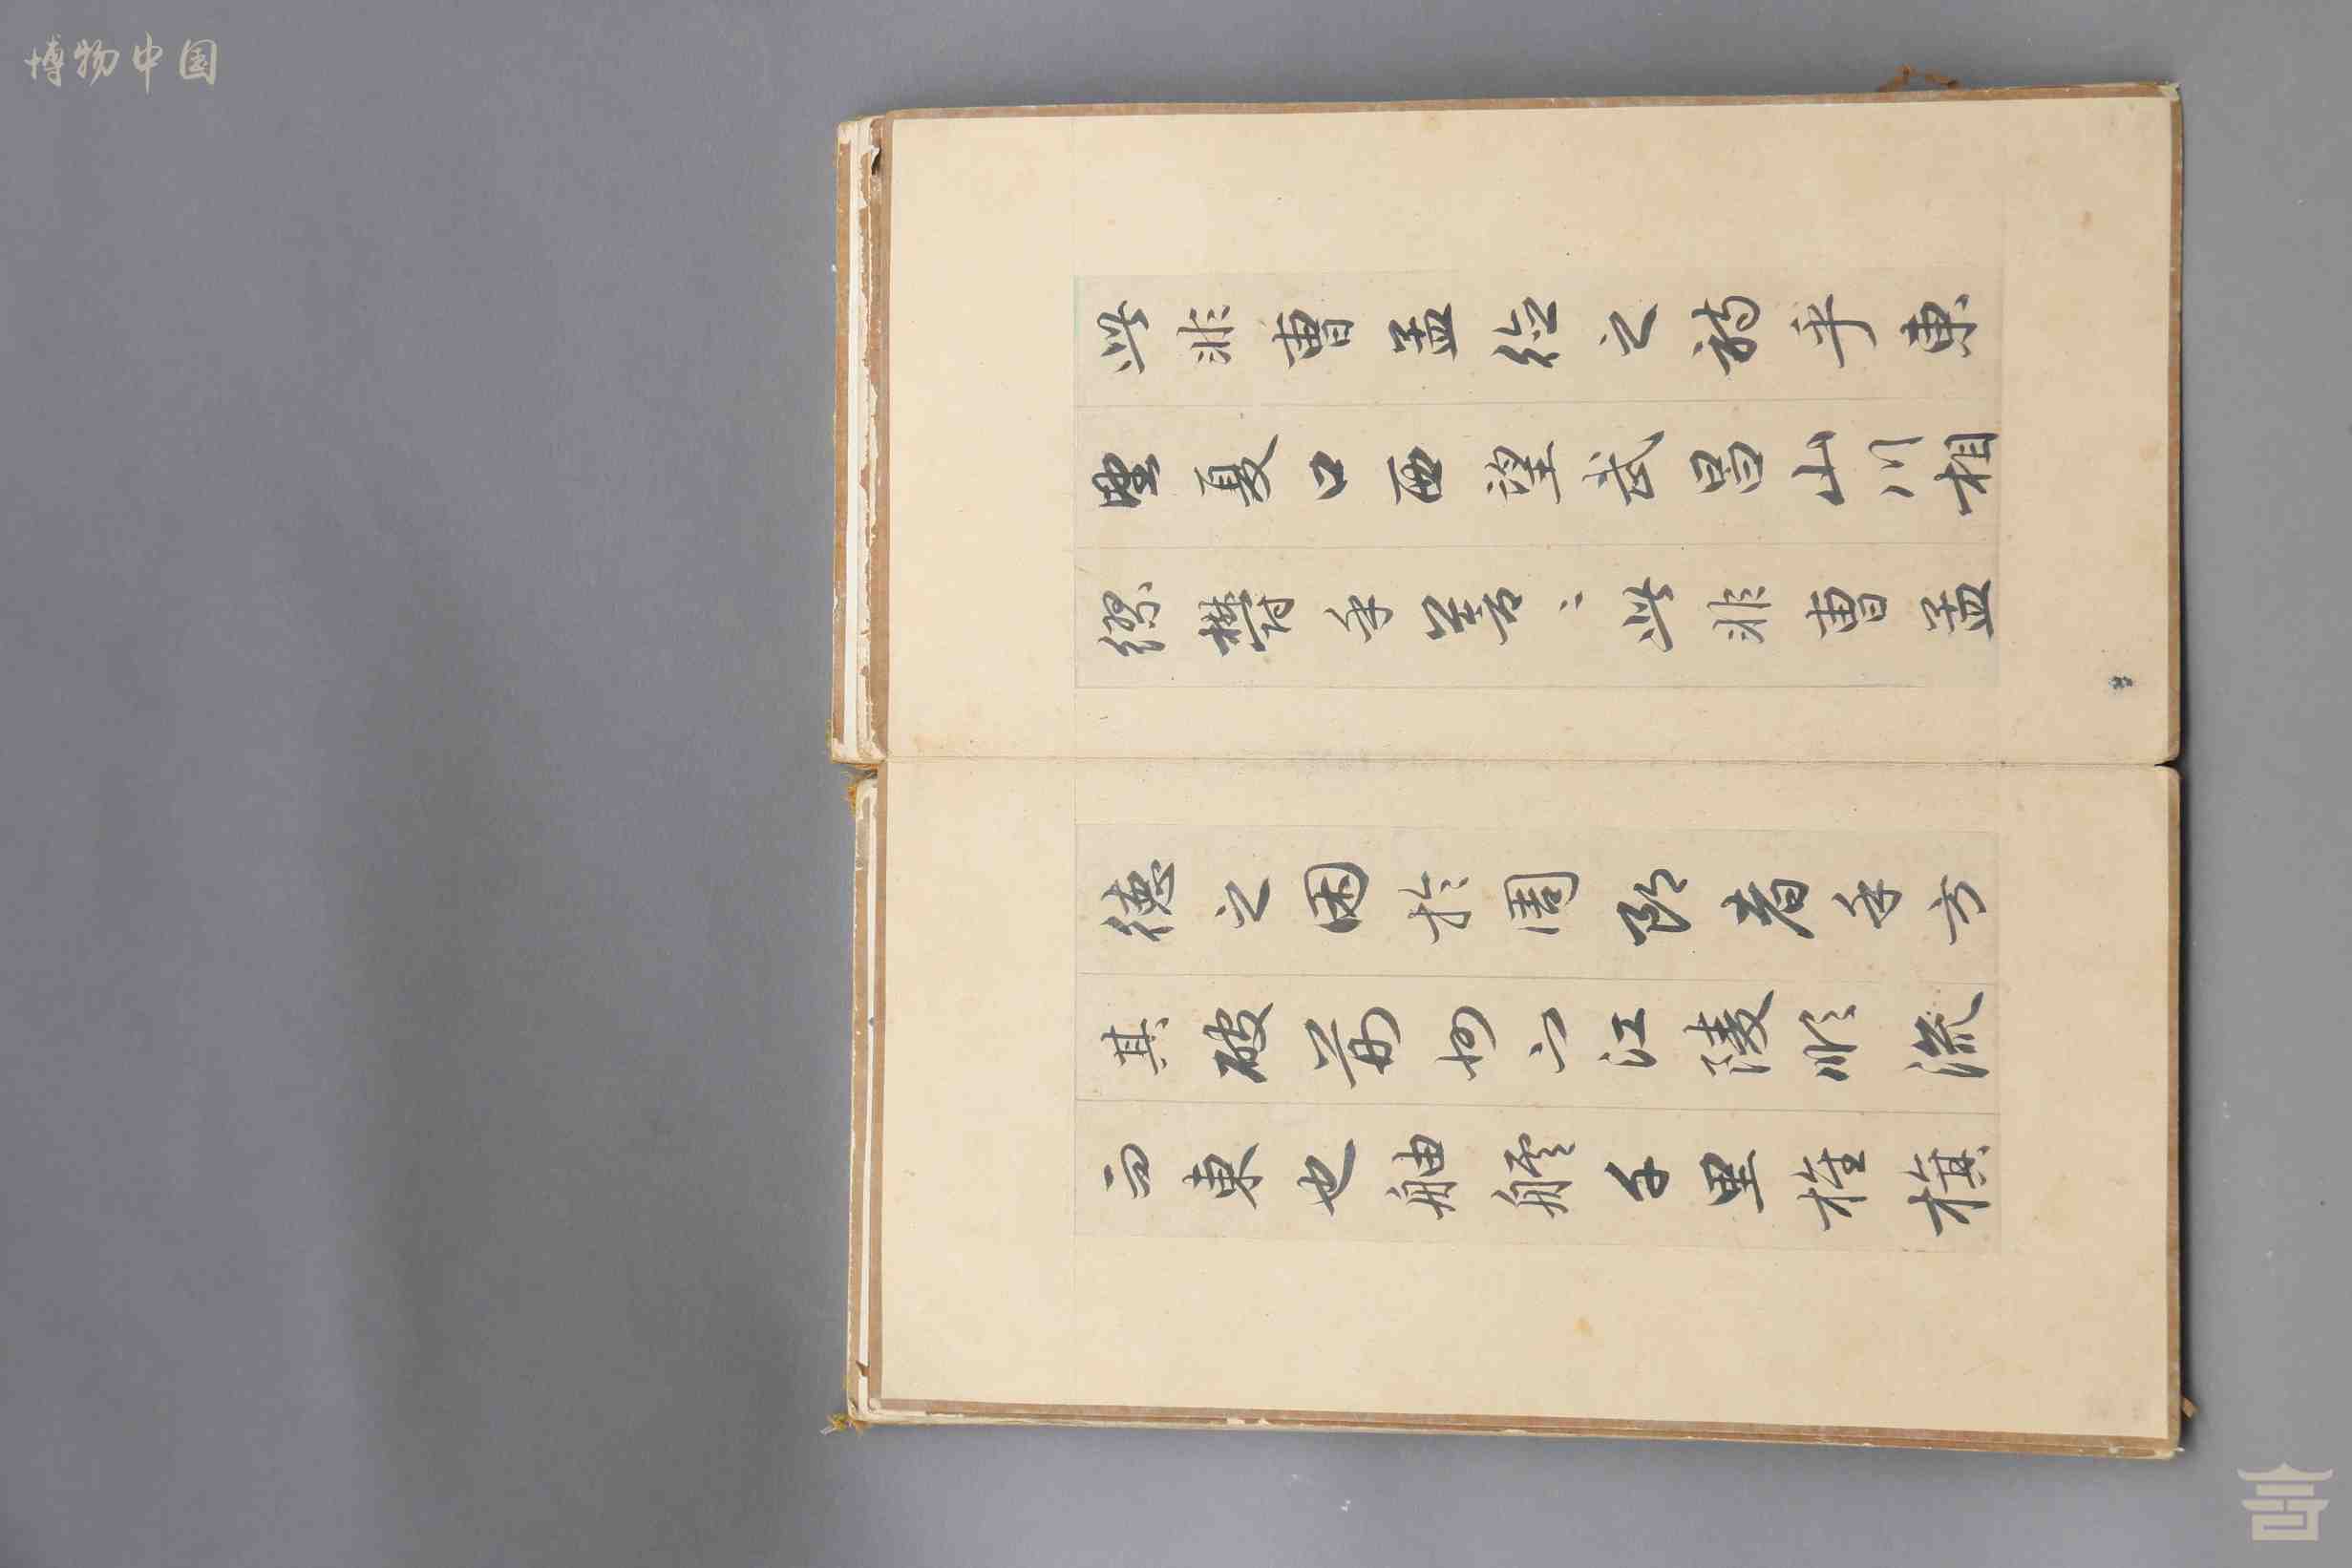 博物中国
此非曹孟德之詩乎東
望夏口西望武昌山川相
繆鬱乎蒼〻此非曹孟
德之困於周郎者乎方
其破荊州下江陵順流
而東也舳艫千里旌旗